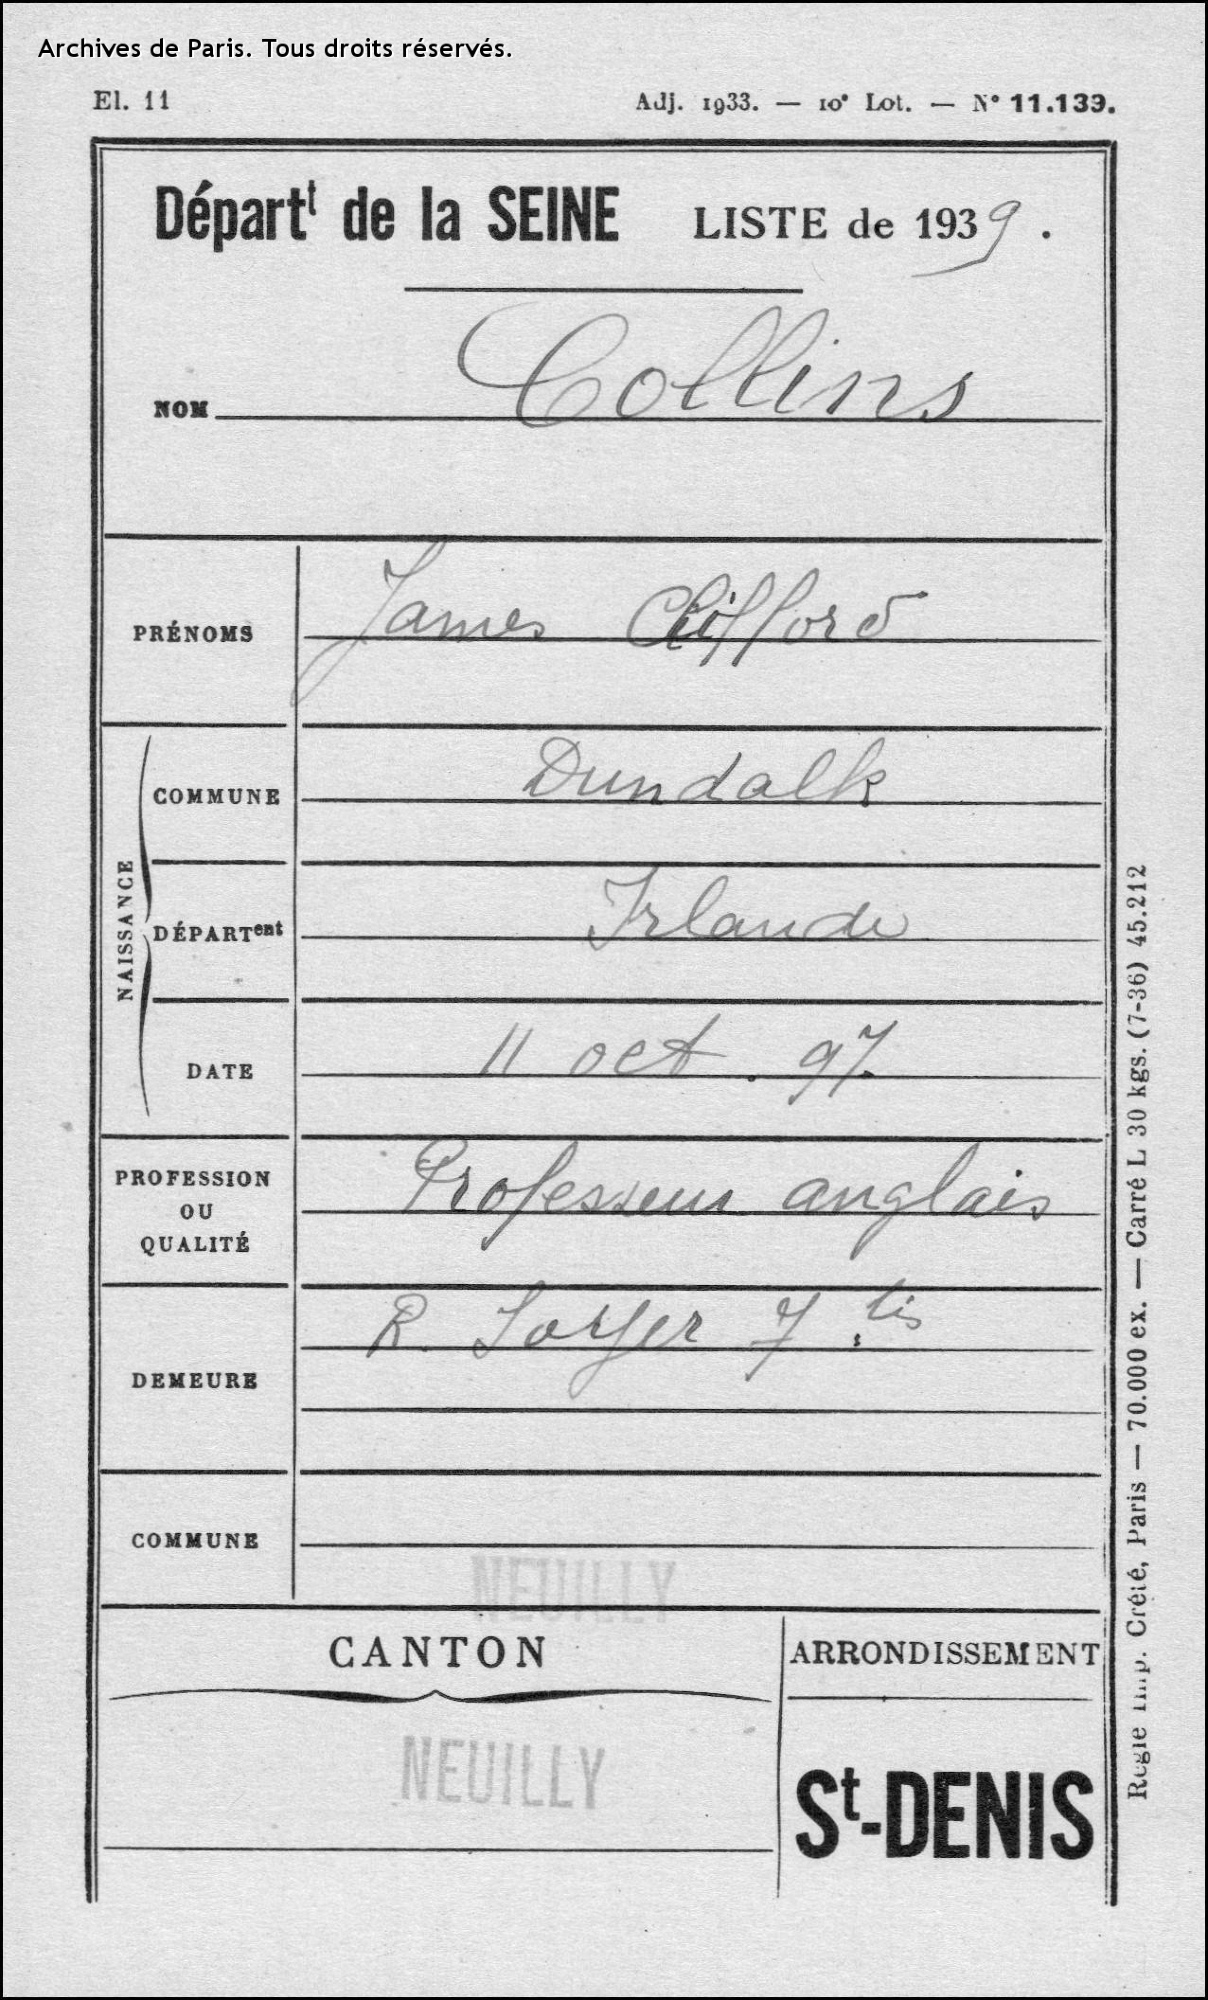 Archives de Paris. Tous droits réservés.
El. 11
Adj. 1933. — 10e Lot. — N° 11.139.
Départt de la SEINE LISTE de 1939.
NOM Collins
PRÉNOMS James Clifford
NAISSANCE
COMMUNE Dundalk
DÉPARTent Irlande
DATE 11 oct. 97.
PROFESSION
OU
QUALITÉ
Professeur anglais
DEMEURE R. Soyer 7 bis
COMMUNE NEUILLY
CANTON
NEUILLY
ARRONDISSEMENT
St-DENIS
Régie Imp. Crété, Paris — 70.000 ex. — Carré L 30 kgs. (7-36) 45.212